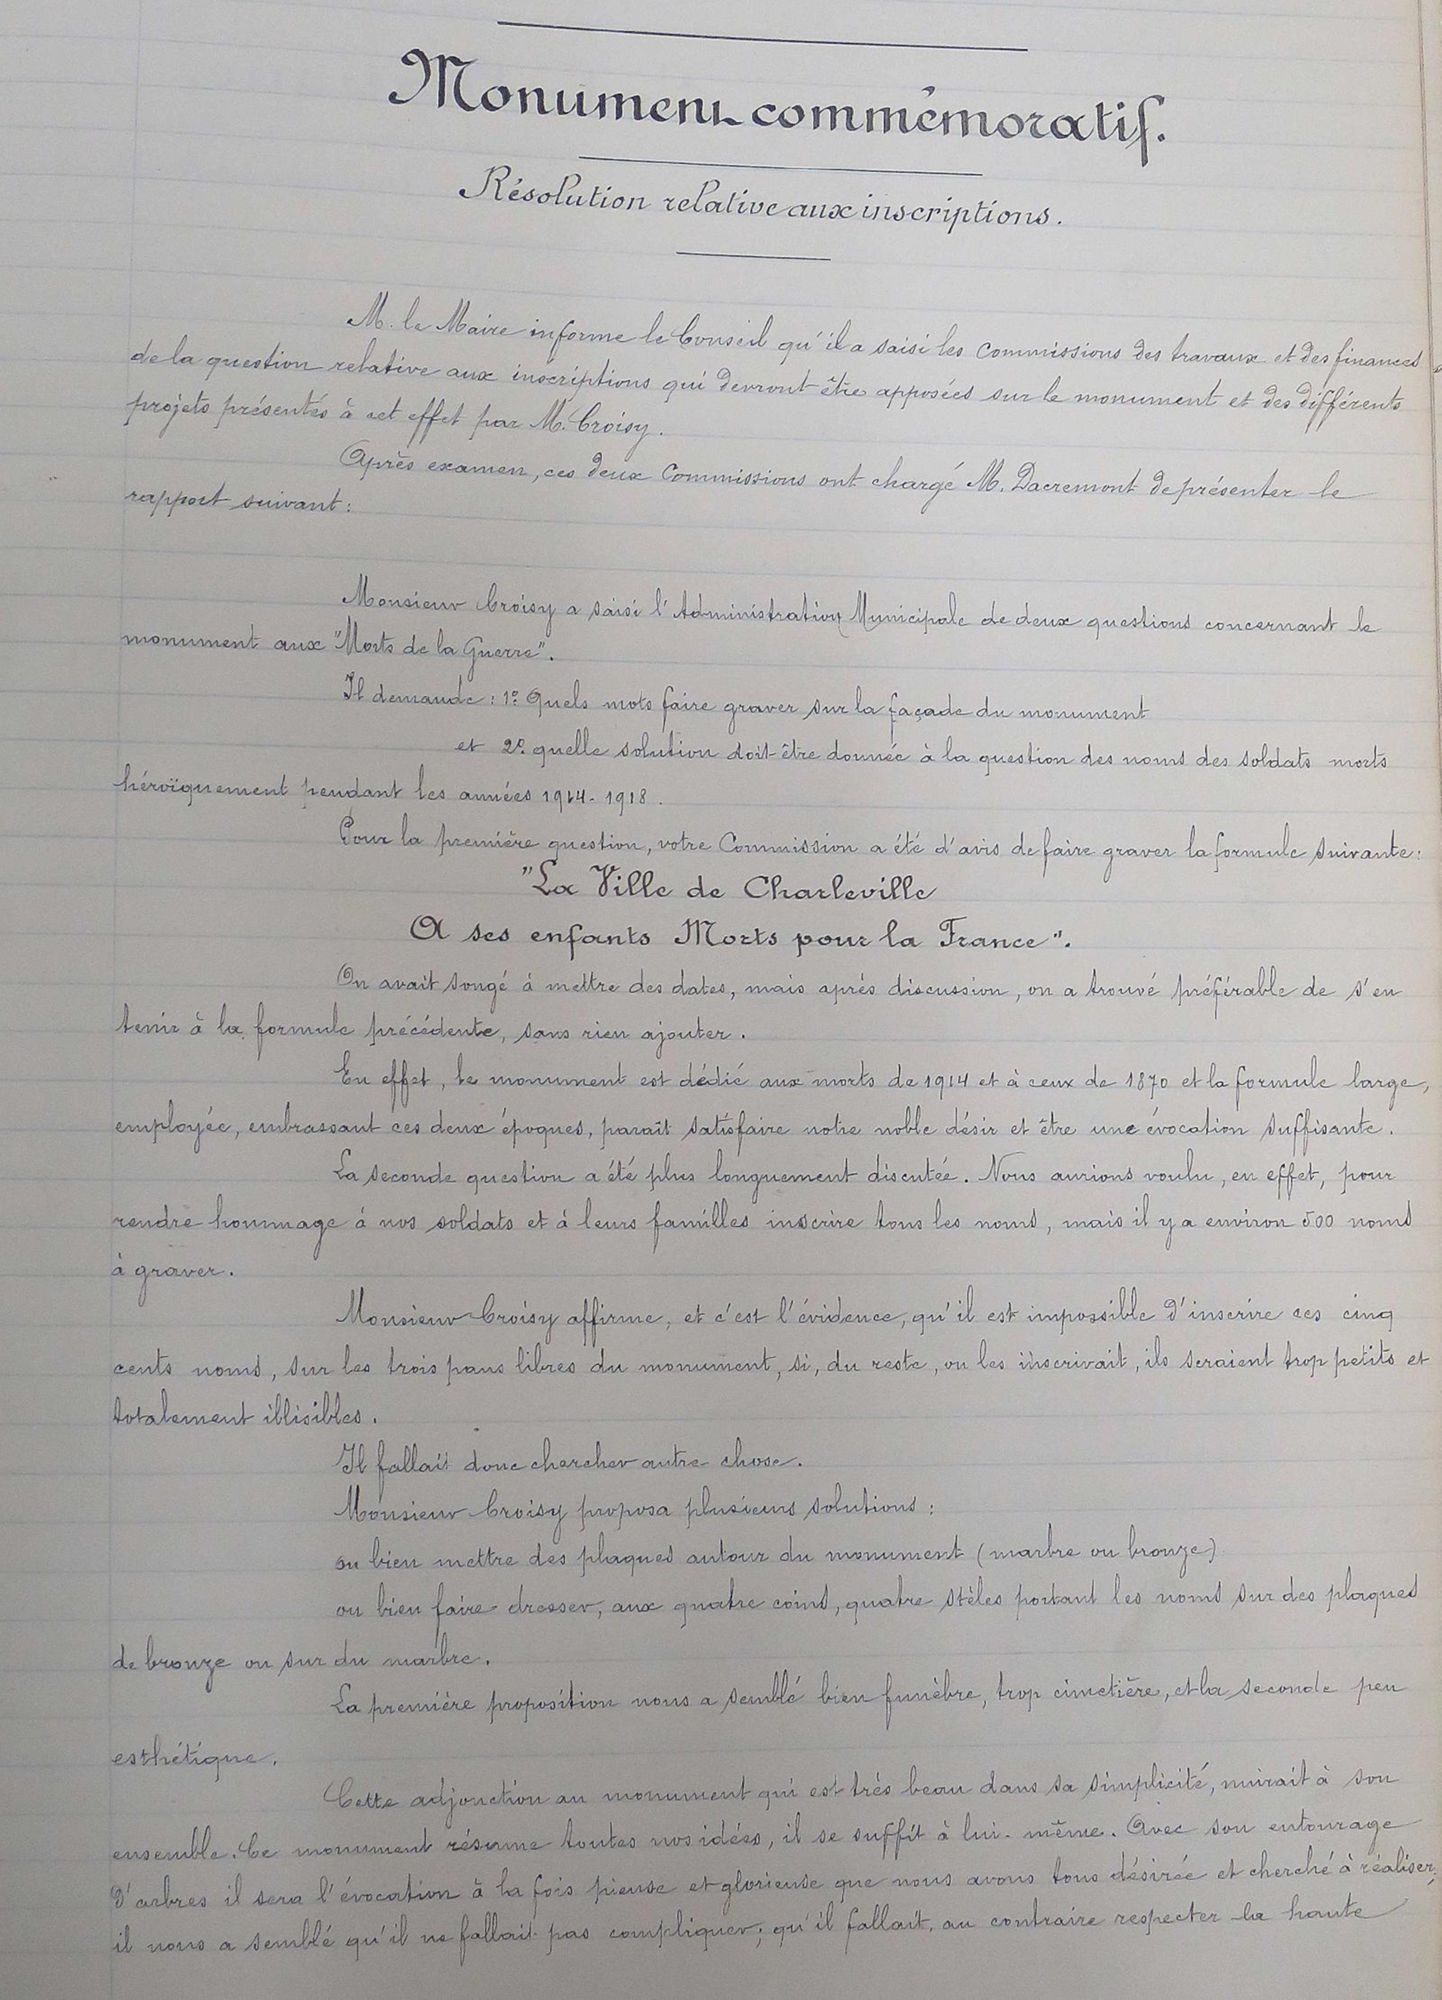 Monument commémoratif.
Résolution relative aux inscriptions.
M. le Maire informe le Conseil qu'il a saisi les Commissions des travaux et des finances
de la question relative aux inscriptions qui devront être apposées sur le monument et des différents
projets présentés à cet effet par M. Croisy.
Après examen, ces deux Commissions ont chargé M. Dacremont de présenter le
rapport suivant :
Monsieur Croisy a saisi l'Administration Municipale de deux questions concernant le
monument aux "Morts de la Guerre".
Il demande : 1º Quels mots faire graver sur la façade du monument
et 2º quelle solution doit-être donnée à la question des noms des soldats morts
héroïquement pendant les années 1914-1918.
Pour la première question, votre Commission a été d'avis de faire graver la formule suivante :
"La Ville de Charleville
A ses enfants Morts pour la France".
On avait songé à mettre des dates, mais après discussion, on a trouvé préférable de s'en
tenir à la formule précédente, sans rien ajouter.
En effet, le monument est dédié aux morts de 1914 et à ceux de 1870 et la formule large,
employée, embrassant ces deux époques, paraît satisfaire notre noble désir et être une évocation suffisante.
La seconde question a été plus longuement discutée. Nous aurions voulu, en effet, pour
rendre hommage à nos soldats et à leurs familles inscrire tous les noms, mais il y a environ 500 noms
à graver.
Monsieur Croisy affirme, et c'est l'évidence, qu'il est impossible d'inscrire ces cinq
cents noms, sur les trois pans libres du monument, si, du reste, on les inscrivait, ils seraient trop petits et
totalement illisibles.
Il fallait donc chercher autre chose.
Monsieur Croisy proposa plusieurs solutions :
ou bien mettre des plaques autour du monument (marbre ou bronze)
ou bien faire dresser, aux quatre coins, quatre stèles portant les noms sur des plaques
de bronze ou sur du marbre.
La première proposition nous a semblé bien funèbre, trop cimetière, et la seconde peu
esthétique.
Cette adjonction au monument qui est très beau dans sa simplicité, nuirait à son
ensemble. Ce monument résume toutes nos idées, il se suffit à lui-même. Avec son entourage
d'arbres il sera l'évocation à la fois pieuse et glorieuse que nous avons tous désirée et cherché à réaliser,
il nous a semblé qu'il ne fallait pas compliquer ; qu'il fallait, au contraire respecter la haute